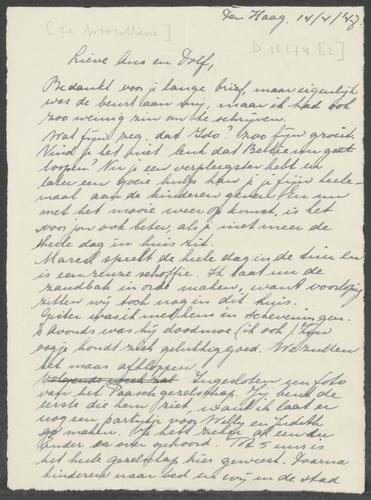 Den Haag. 14/4/'47.
[ze broodlevie]
D.11/74 [2]
Lieve Ans en Dolf,
Bedankt voor je lange brief, maar eigenlijk
was de beurt aan mij, maar ik had ook
zoo weinig zin om te schrijven.
Wat fijn zeg, dat Ido? zoo fijn groeit.
Vind je het niet leuk dat Bettie nu gaat
loopen? Nu je een verpleegster hebt en
later een goeie hulp kan je je fijn heele-
maal aan de kinderen geven. En nu
met het mooie weer op komst, is het
voor jou ook beter, als je niet meer de
heele dag in huis zit.
Marcel speelt de heele dag in de tuin en
is een reuze schoffie. Ik laat nu de
zandbak in orde maken, want voorloopig
zitten wij toch nog in dit huis.
Gister was ik met hem in Scheveningen.
's avonds was hij doodmoe (ik ook) Zijn
oogje houdt zich gelukkig goed. We zullen
het maar afkloppen.
Volgende week zal Ingesloten een foto
van het Paaschgezelschap. Jij bent de
eerste die hem ziet, want ik laat er
nog een partijtje voor Welly en Judith
maken. Je hebt zeker al een en
ander er over gehoord. Tot 5 uur is
het heele gezelschap hier geweest. Daarna
kinderen naar bed en wij in de stad